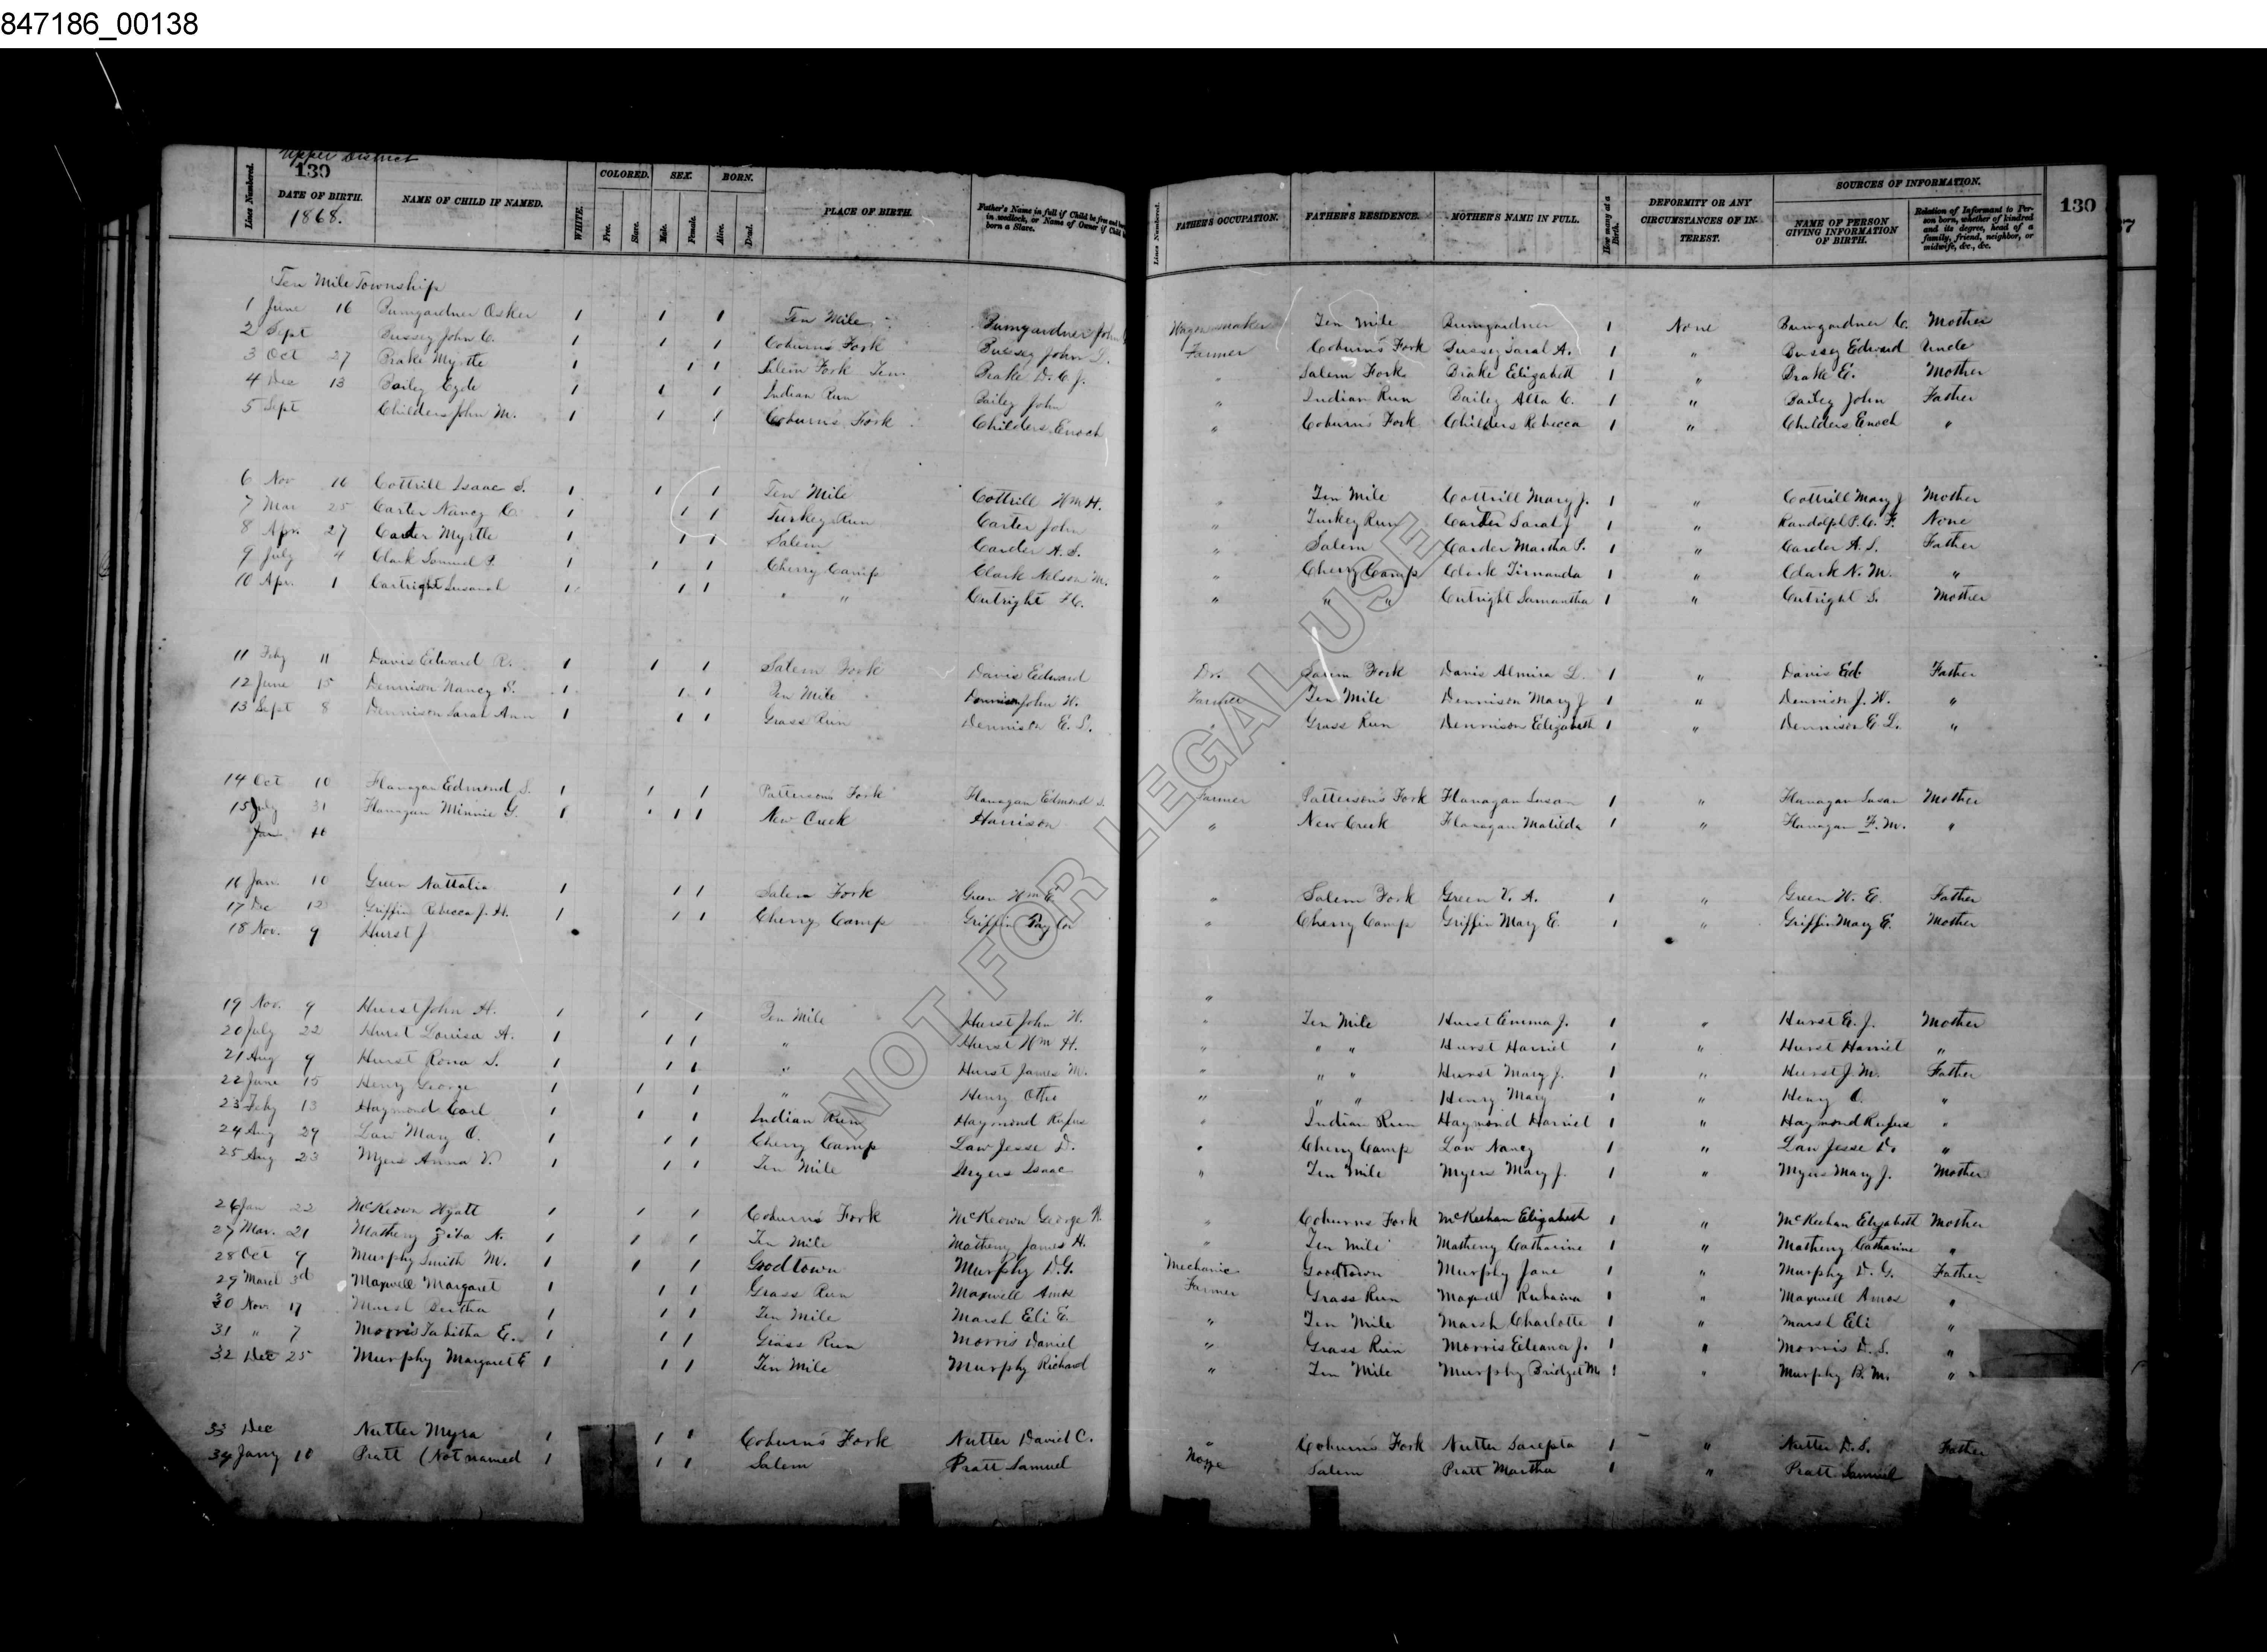 847186_00138
Upper District
130
Lines Numbered. DATE OF BIRTH. 1868. NAME OF CHILD IF NAMED. WHITE. COLORED. Free. Slave. SEX. Male. Female. BORN. Alive. Dead. PLACE OF BIRTH. Father's Name in full if Child be free and born in wedlock, or Name of Owner if Child born a Slave.
Lines Numbered. FATHER'S OCCUPATION. FATHER'S RESIDENCE. MOTHER'S NAME IN FULL. How many at a Birth. DEFORMITY OR ANY CIRCUMSTANCES OF INTEREST. SOURCES OF INFORMATION. NAME OF PERSON GIVING INFORMATION OF BIRTH. Relation of Informant to Person born, whether of kindred and its degree, head of a family, friend, neighbor, or midwife, &c., &c. 130
Ten Mile Township
1 June 16 Bumgardner Osker 1 1 1 Ten Mile Bumgardner John Wagon maker Ten Mile Bumgardner 1 None Bumgardner C. Mother
2 Sept Bussey John C. 1 1 1 Coburn's Fork Bussey John L. Farmer Coburn's Fork Bussey Sarah A. 1 " Bussey Edward Uncle
3 Oct 27 Brake Myrtle 1 1 1 Salem Fork Ten. Brake D. C. J. " Salem Fork Brake Elizabeth 1 " Brake E. Mother
4 Dec 13 Bailey Eyde 1 1 1 Indian Run Bailey John " Indian Run Bailey Alta C. 1 " Bailey John Father
5 Sept Childers John M. 1 1 1 Coburn's Fork Childers Enoch " Coburn's Fork Childers Rebecca 1 " Childers Enoch "
6 Nov 16 Cottrill Isaac S. 1 1 1 Ten Mile Cottrill Wm H. " Ten Mile Cottrill Mary J. 1 " Cottrill Mary J Mother
7 Mar 25 Carter Nancy C. 1 1 1 Turkey Run Carter John " Turkey Run Carter Sarah J 1 " Randolph P. C. F. None
8 Apr. 27 Carder Myrtle 1 1 1 Salem Carder A. S. " Salem Carder Martha P. 1 " Carder A. S. Father
9 July 4 Clark Samuel P. 1 1 1 Cherry Camp Clark Nelson M. " Cherry Camp Clark Tirnanda 1 " Clark N. M. "
10 Apr. 1 Cartright Susanah 1 1 1 " " Cutright H. C. " " " Cutright Samantha 1 " Cutright S. Mother
11 Feby 11 Davis Edward R. 1 1 1 Salem Fork Davis Edward Dr. Salem Fork Davis Almira L. 1 " Davis Ed. Father
12 June 15 Dennison Nancy E. 1 1 1 Ten Mile Dennison John W. Farmer Ten Mile Dennison Mary J 1 " Dennison J. W. "
13 Sept 8 Dennison Sarah Ann 1 1 1 Grass Run Dennison E. L. " Grass Run Dennison Elizabeth 1 " Dennison E. L. "
14 Oct 10 Flanagan Edmond S. 1 1 1 Patterson's Fork Flanagan Edmond S. Farmer Patterson's Fork Flanagan Susan 1 " Flanagan Susan Mother
15 July 31 Flanagan Minnie G. 1 1 1 New Creek Harrison " New Creek Flanagan Matilda 1 " Flanagan F. M. "
Jan 10
16 Jan. 10 Green Nattalia 1 1 1 Salem Fork Green Wm E " Salem Fork Green V. A. 1 " Green W. E. Father
17 Dec 12 Griffin Rebecca J. H. 1 1 1 Cherry Camp Griffin Taylor " Cherry Camp Griffin Mary E. 1 " Griffin Mary E. Mother
18 Nov. 9 Hurst J
19 Nov. 9 Hurst John H. 1 1 1 Ten Mile Hurst John W. " Ten Mile Hurst Emma J. 1 " Hurst E. J. Mother
20 July 22 Hurst Louisa A. 1 1 1 " Hurst Wm H. " " " Hurst Harriet 1 " Hurst Harriet "
21 Aug 9 Hurst Rona S. 1 1 1 " Hurst James M. " " " Hurst Mary J. 1 " Hurst J. M. Father
22 June 15 Henry George 1 1 1 " Henry Otho " " " Henry Mary 1 " Henry O. "
23 Feby 13 Haymond Carl 1 1 1 Indian Run Haymond Rufus " Indian Run Haymond Harriet 1 " Haymond Rufus "
24 Aug 29 Law Mary O. 1 1 1 Cherry Camp Law Jesse D. " Cherry Camp Law Nancy 1 " Law Jesse D. "
25 Aug 23 Myers Anna V. 1 1 1 Ten Mile Myers Isaac " Ten Mile Myers Mary J. 1 " Myers Mary J. Mother
26 Jan 22 McKeown Hyatt 1 1 1 Coburn's Fork McKeown George W. " Coburns Fork McKeehan Elizabeth 1 " McKeehan Elizabeth Mother
27 Mar. 21 Matheny Ziba N. 1 1 1 Ten Mile Matheny James H. " Ten Mile Matheny Catharine 1 " Matheny Catharine "
28 Oct 9 Murphy Smith M. 1 1 1 Goodtown Murphy D. G. Mechanic Goodtown Murphy Jane 1 " Murphy D. G. Father
29 March 3d Maxwell Margaret 1 1 1 Grass Run Maxwell Amos Farmer Grass Run Maxwell Ruhaina 1 " Maxwell Amos "
30 Nov. 17 Marsh Bertha 1 1 1 Ten Mile Marsh Eli E. " Ten Mile Marsh Charlotte 1 " Marsh Eli "
31 " 7 Morris Tabitha E. 1 1 1 Grass Run Morris Daniel " Grass Run Morris Eleana J. 1 " Morris D. S. "
32 Dec 25 Murphy Margaret E 1 1 1 Ten Mile Murphy Richard " Ten Mile Murphy Bridget M. 1 " Murphy B. M. "
33 Dec Nutter Myra 1 1 1 Coburn's Fork Nutter David C. " Coburn's Fork Nutter Sarepta 1 " Nutter D. S. Father
34 Jany 10 Pratt (Not named 1 1 1 Salem Pratt Samuel None Salem Pratt Martha 1 " Pratt Samuel
NOT FOR LEGAL USE